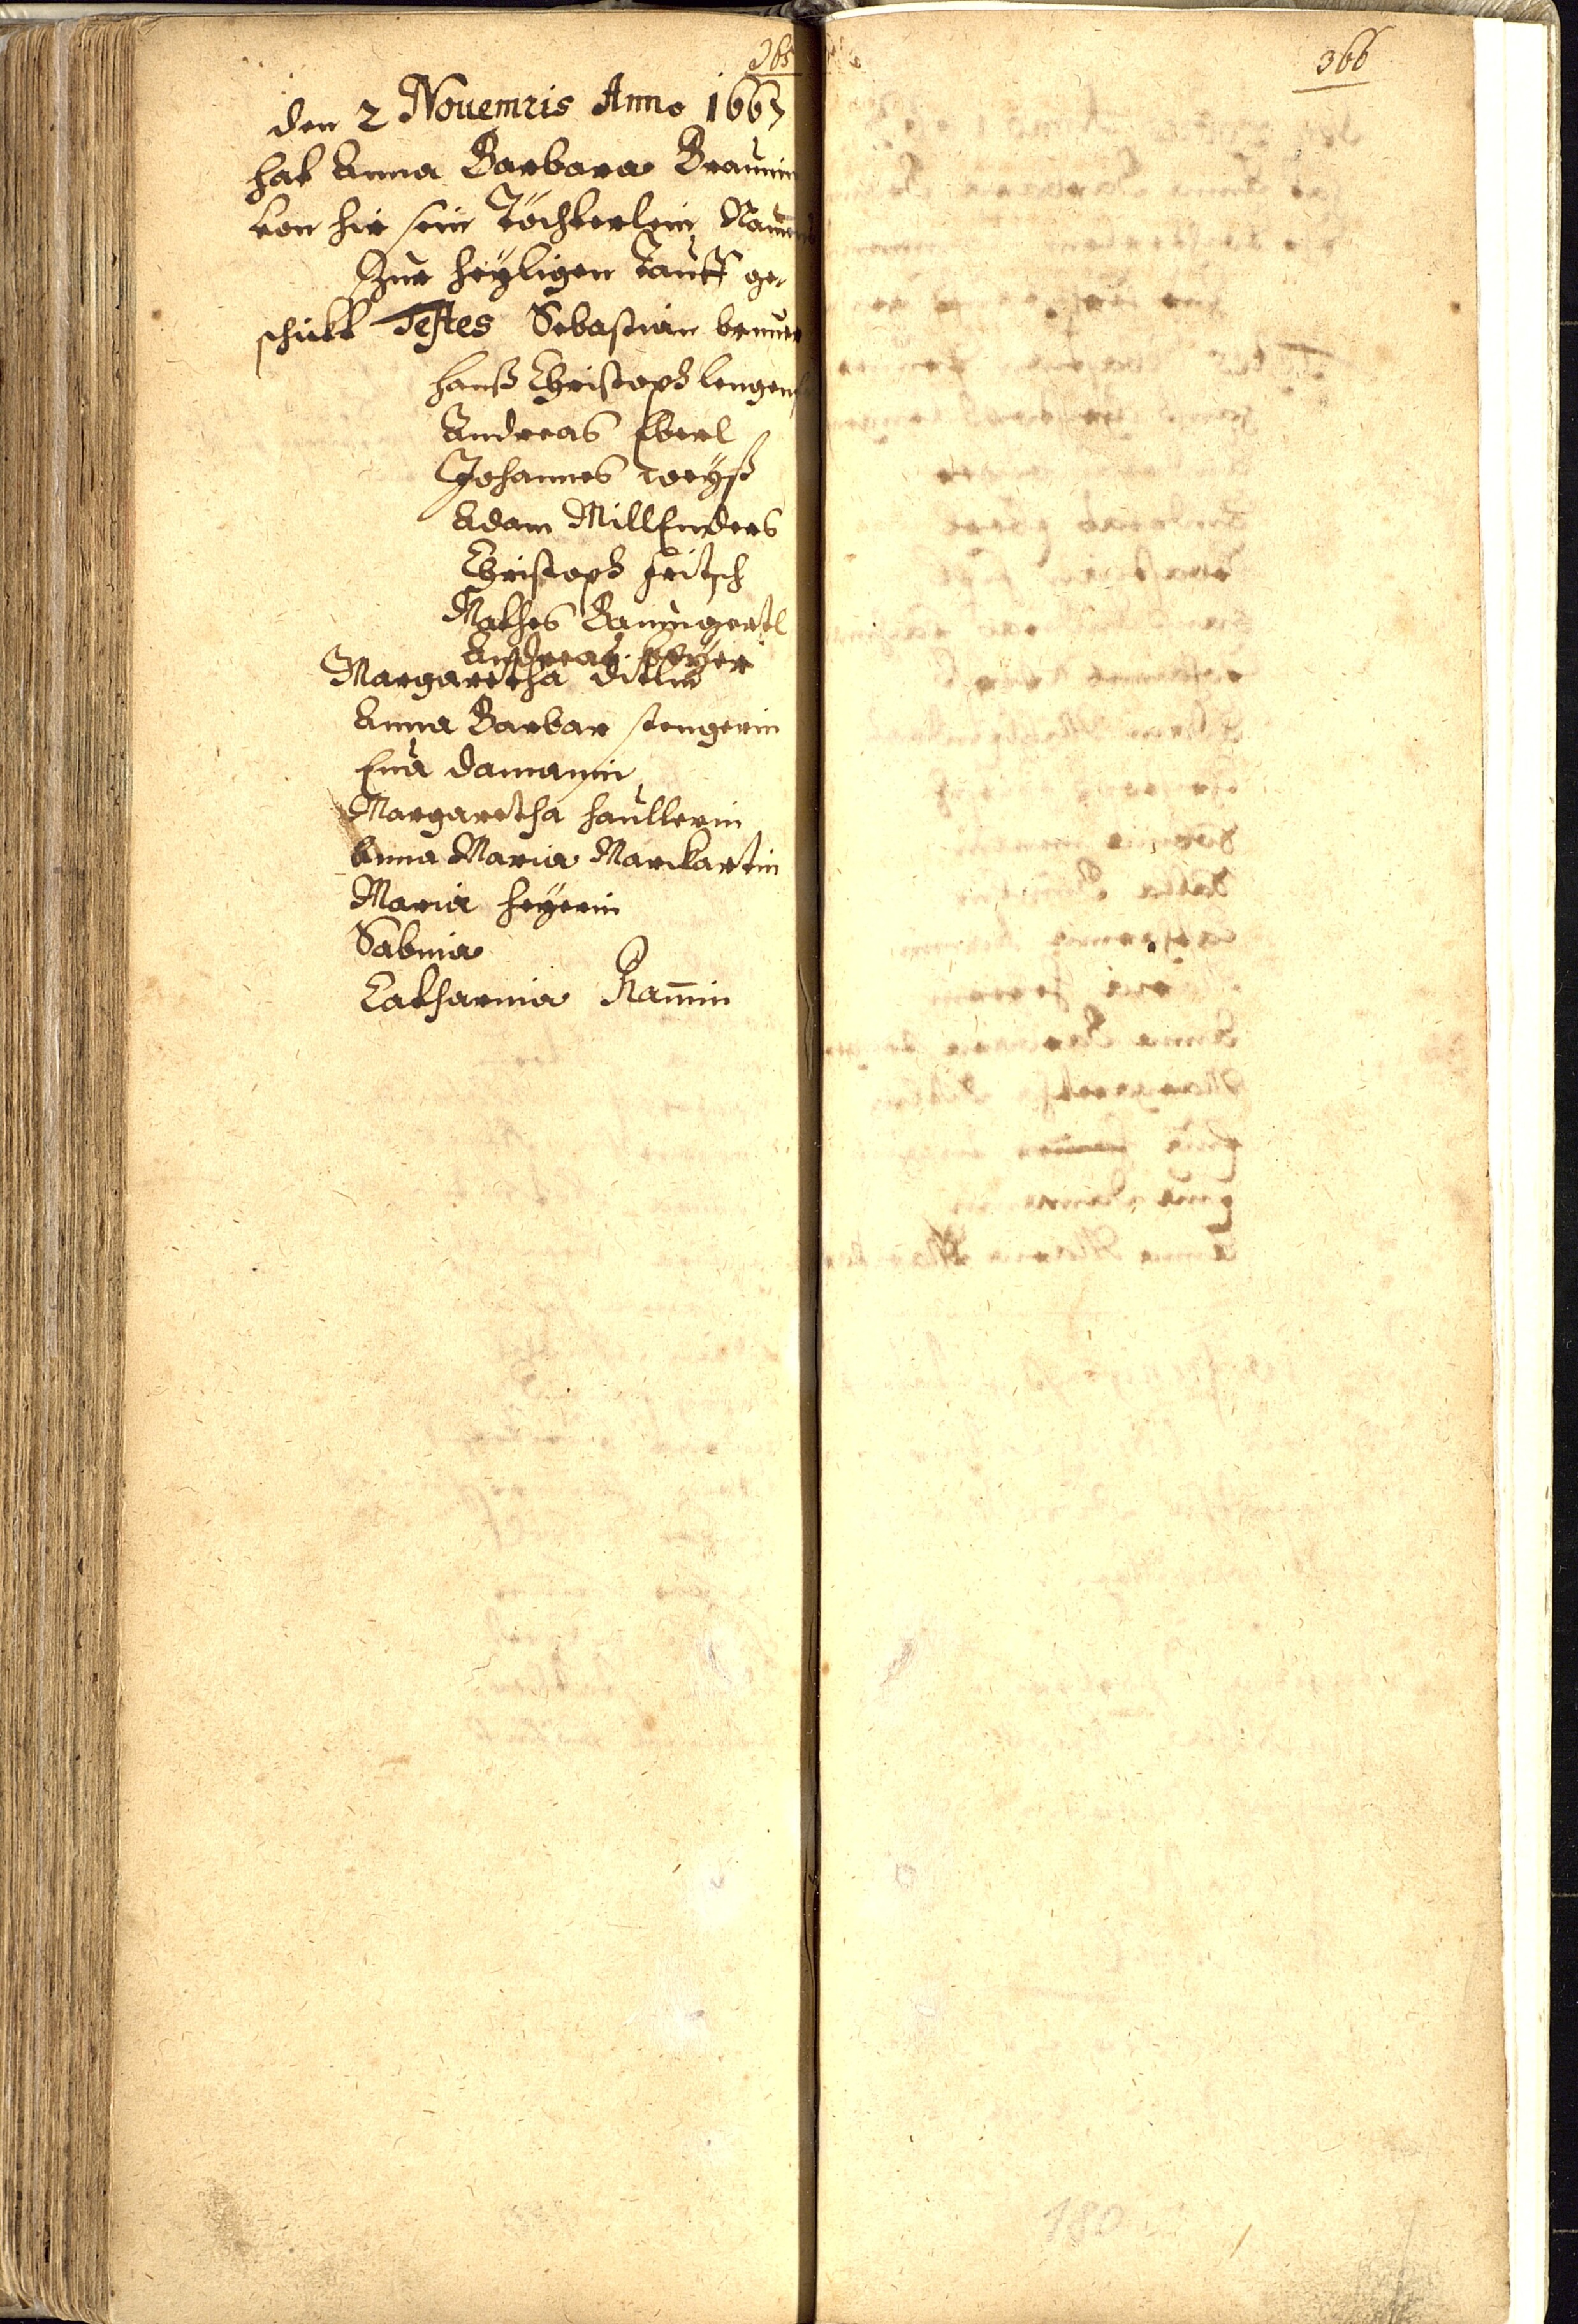 365
den 2 Nouemris Anno 1663
hat Anna Barbara Braunin
von hir sein Töchterlein Namens
Zur heyligen Tauff ge-
schickt Testes Sebastian brauer
hanß Christoph lengen
Andreas Eberl
Johannes weyß
Adam Millenders
Christoph fritsch
Mathes Baumgertl
Andreas beyer
Margaretha ditlin
Anna Barbar stengerin
Eua damanin
Margaretha haullerin
Anna Maria Marckartin
Maria heyerin
Sabina
Catharina Ram̅in
366
180